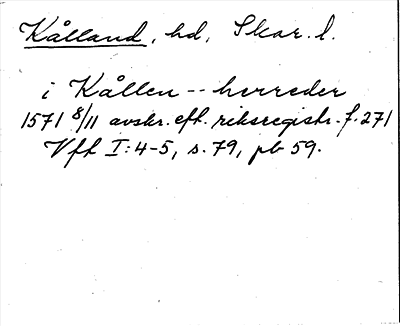 Kålland, hd, Skar. l.
i Kållen -- herreder
1571 8/11 avskr. eft. riksregistr. f. 271
Vff I: 4-5, s. 79, pb 59.